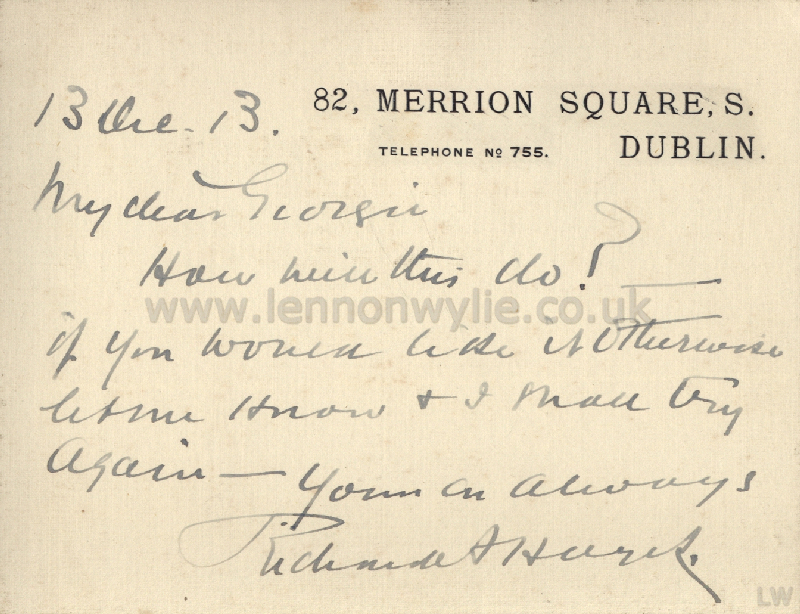 82, MERRION SQUARE, S.
13 Dec. 13.
TELEPHONE No 755. DUBLIN.
My dear Georgie
How will this do?
www.lennonwylie.co.uk
if you would like it otherwise
let me know & I shall try
Again — Yours as always
Richard A Hayes.
LW